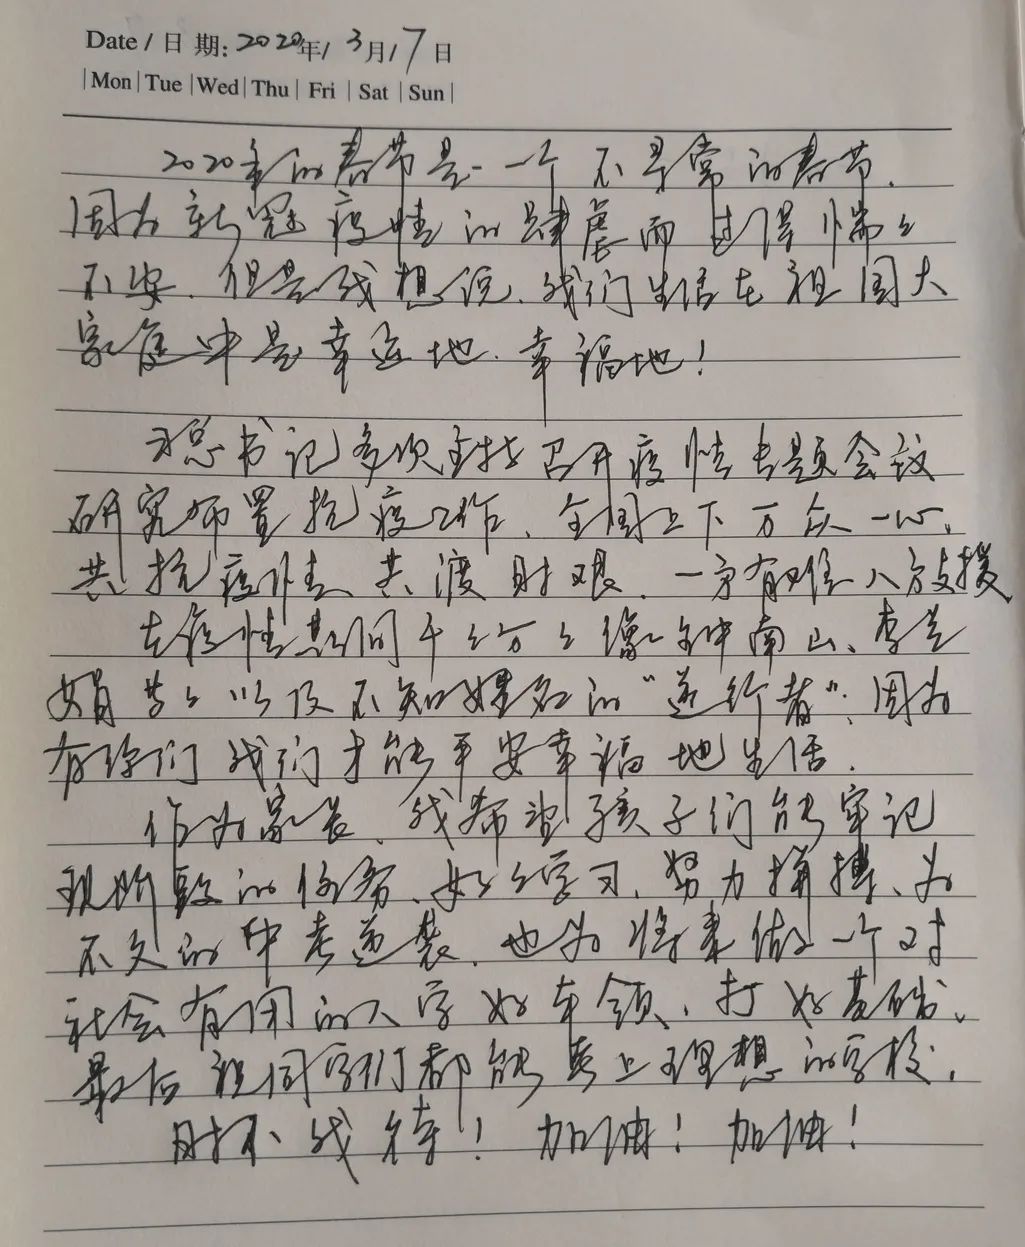 Date / 日 期: 2020年/ 3月/ 7日
|Mon|Tue|Wed|Thu| Fri | Sat | Sun|
2020年的春节是一个不寻常的春节.
因为新冠疫情的肆虐而过得惴々
不安. 但是我想说. 我们生活在祖国大
家庭中是幸运地. 幸福地!
习总书记多次主持召开疫情专题会议
研究布置抗疫工作. 全国上下万众一心.
共抗疫情、共渡时艰. 一方有难八方支援
在疫情期间千々万々像钟南山、李兰
娟等々以及不知姓名的“逆行者”; 因为
有你们我们才能平安幸福地生活.
作为家长. 我希望孩子们能牢记
现阶段的任务. 好々学习. 努力拼搏、为
不久的中考逆袭. 也为将来做一个对
社会有用的人学好本领、打好基础、
最后祝同学们都能考上理想的学校;
时不我待! 加油! 加油!